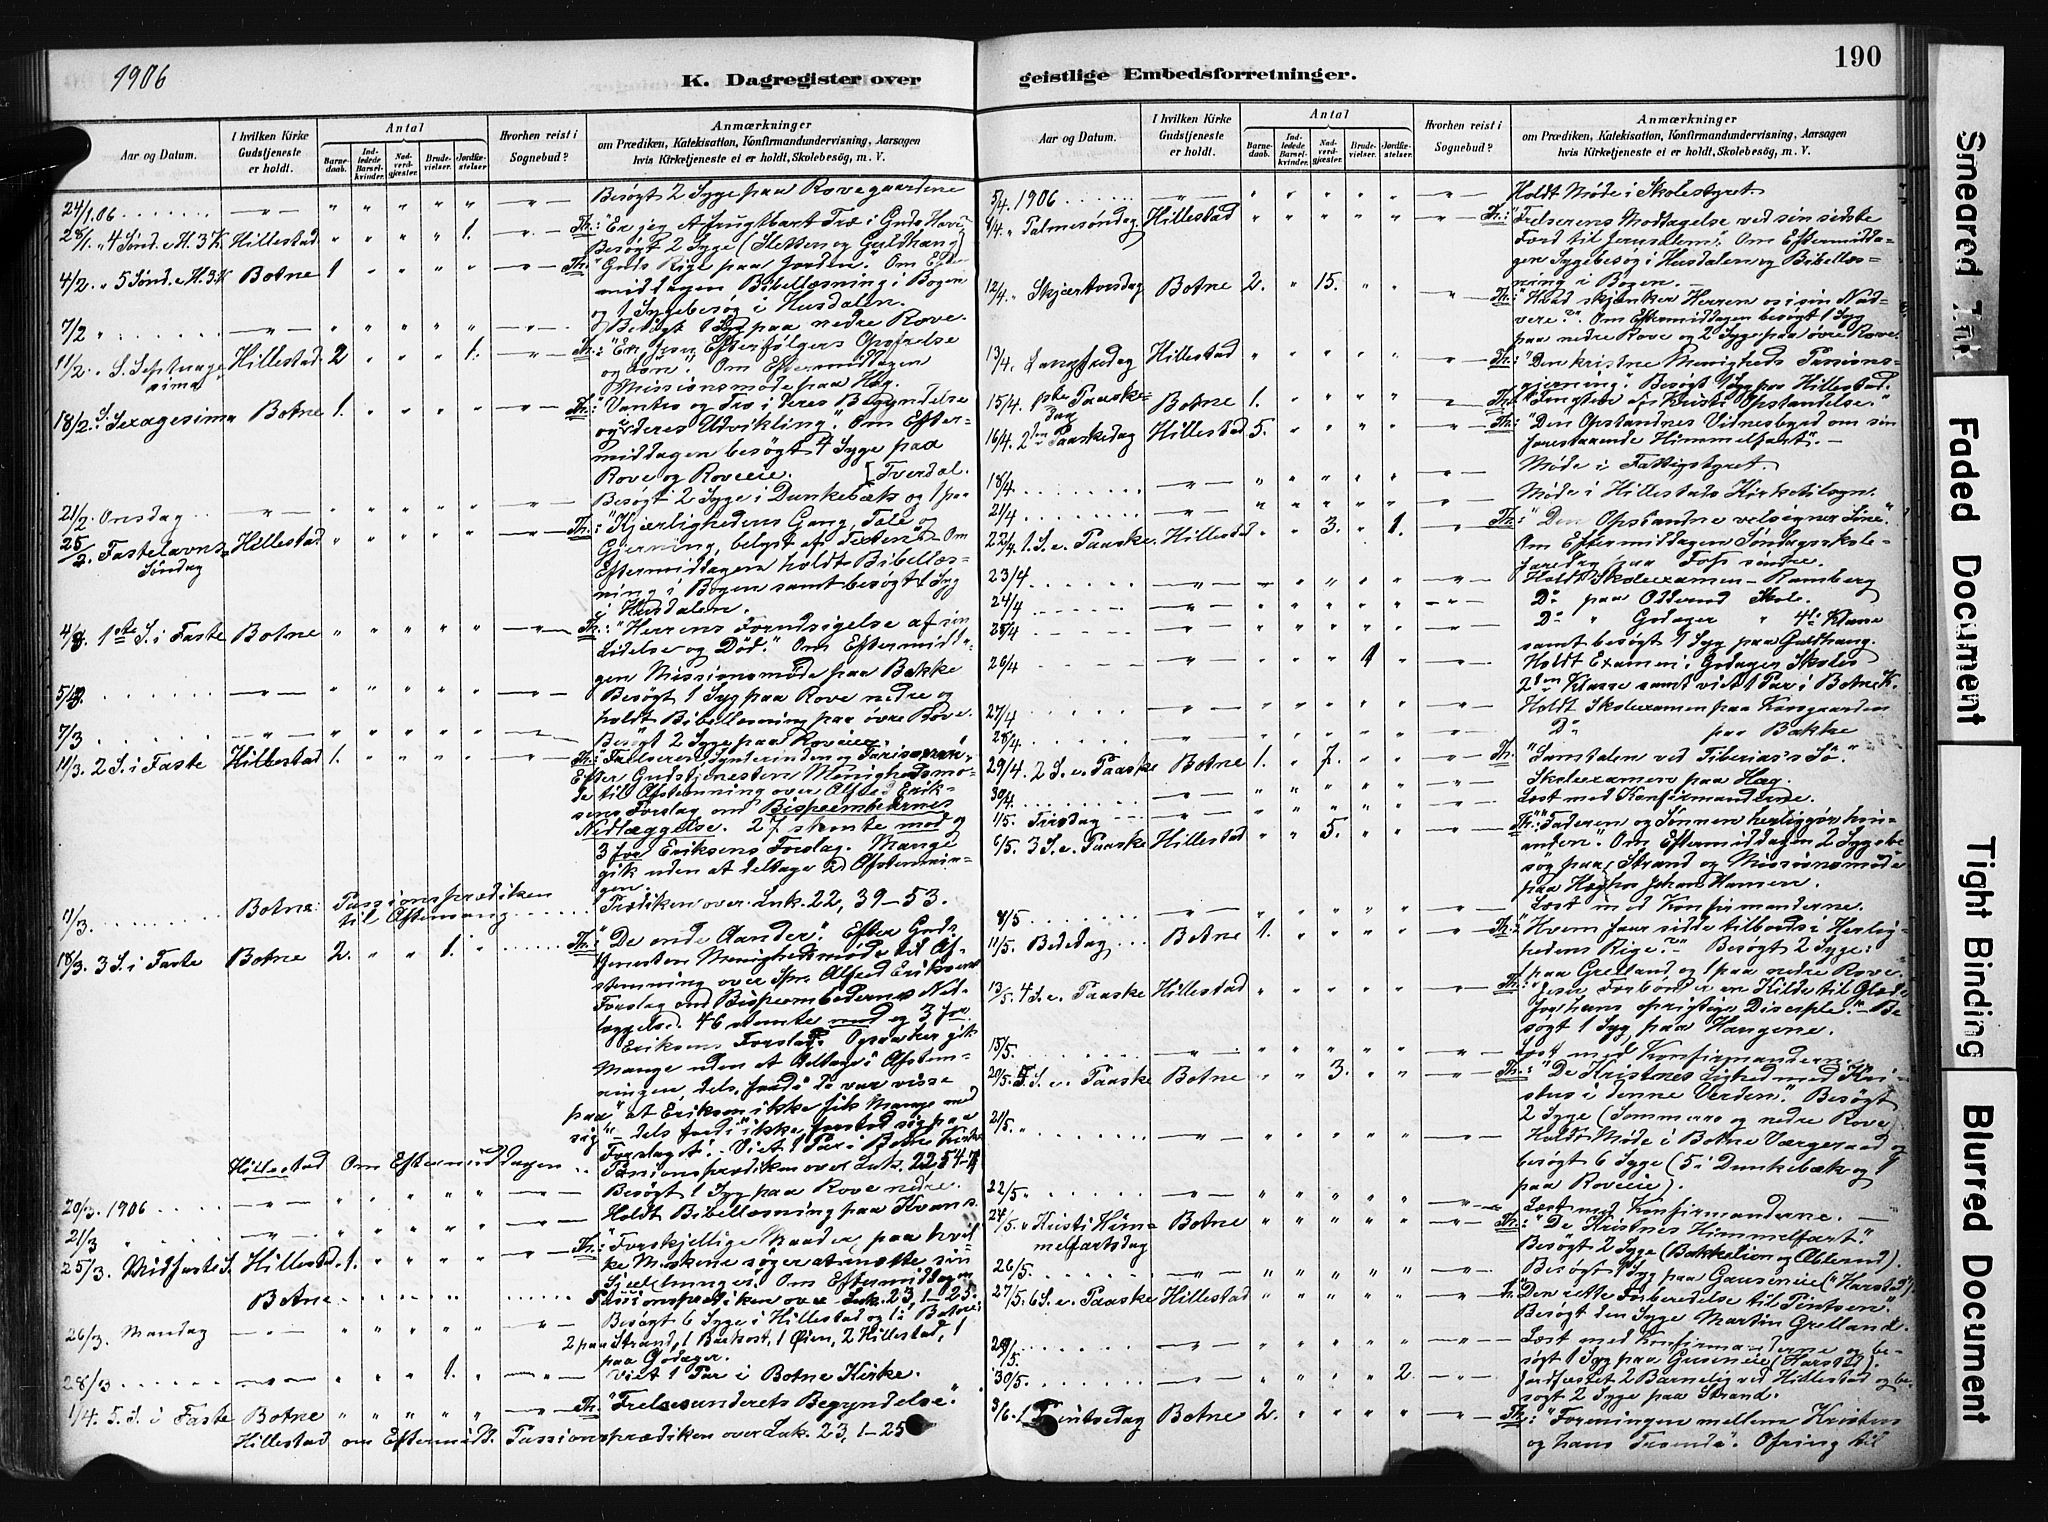 1906
K. Dagregister over
Aar og Datum.
I hvilken Kirke Gudstjeneste er holdt.
Antal
Barnedaab.
Indledede Barselkvinder.
Nadverdgjæster.
Brudevielser.
Jordfæstelser.
Hvorhen reist i Sognebud?
Anmærkninger
om Prædiken, Katekisation, Konfirmandundervisning, Aarsagen
hvis Kirketjeneste ei er holdt, Skolebesøg, m. V.
24/1.06 Besøgt 2 Syge paa Rovegaardene
28/1. 4 Sønd. e. H. 3 K. Hillestad 1. Th: "Er jeg et frugtbart Træ i Guds Have
Besøgt 2 Syge (Sletten og Guldhaug)
4/2. 5 Sønd. e. H. 3. K Botne 1 Th: "Guds Rige paa Jorden." Om Efter
middagen Bibellæsning i Bogen
og 1 Sygebesøg i Husdalen.
7/2 Besøgt 1 Syg paa nedre Rove.
11/2. S. Septuage Hillestad. 2 1. Th: Efterfølgers Opofrelse
sima og Løn." Om Eftermiddagen
Missionsmøde paa Høg.
18/2. S. Sexagesima Botne 1. Th: "Vantro og Tro i deres Begyndelse
og deres Udvikling." Om Efter-
middagen besøgt 4 Syge paa
Rove og Roveeie. Tverdal.
21/2. Onsdag Besøgt 2 Syge i Dunkebæk og 1 paa
25/2. Fastelavns Hillestad. Th: "Kjærlighedens Gang, Tale og
Søndag Gjerning, belyst af Texten." Om
Eftermiddagen holdt Bibellæs-
ning i Bogen samt besøgt 1 Syg
i Husdalen.
4/3. 1ste S. i Faste Botne Th: "Herrens Forudsigelse af sin
Lidelse og Død." Om Eftermidda-
gen Missionsmøde paa Bakke
5/3 Besøgt 1 Syg paa Rove nedre og
holdt Bibellæsning paa øvre Rove.
7/3 Besøgt 2 Syge paa Roveeie.
11/3. 2 S. i Faste Hillestad 1. Th: Frelseren, Synderinden og Farisæeren.
Efter Gudstjenesten Menighedsmø-
de til Afstemning over Alfred Erik-
sens Forslag om Bispeembedernes
Nedlæggelse. 27 stemte mod og
3 for Eriksens Forslag. Mange
gik uden at deltage i Afstemnin-
gen.
11/3. Botne: Passionsprædiken Prædiken over Luk. 22, 39-53.
til Aftensang
18/3. 3 S. i Faste Botne 2. 1. Th: "De onde Aander." Efter Guds
tjenesten Menighedsmøde til Af-
stemning over Spr. Alfred Eriksens
Forslag om Bispeembedernes Ned-
læggelse. 46 stemte mod og 3 for
Eriksens Forslag. Ogsaa her gik
Mange uden at deltage i Afstem-
ningen, dels fordi de var visse
paa at Eriksen ikke fik Mange med
sig, dels fordi ikke forstod sig paa
Forslaget. Viet 1 Par i Botne Kirke
Hillestad Om Eftermiddagen Passionsprædiken over Luk. 22 54-71
20/3. 1906 Besøgt 1 Syg paa Rove nedre.
21/3 Holdt Bibellæsning paa Kvans
25/3. Midfaste S. Hillestad. 1. Th: "Forskjellige Maader, paa hvil-
ke Mskene søger at mætte sin
Sjæl Om Eftermiddagen
Botne Passionsprædiken over Luk. 23, 1-25.
26/3. Mandag Besøgt 6 Syge i Hillestad og 1 i Botne:
2 paa Strand, 1 Barkost, 1 Øien, 2 Hillestad, 1
paa Godager.
28/3 1. Viet 1 Par i Botne Kirke.
1/4. 5. S. i Faste Botne Th: "Frelsesunderets Begyndelse".
Hillestad om Eftermidd. Passionsprædiken over Luk. 23, 1-25
190
geistlige Embedsforretninger.
Aar og Datum.
I hvilken Kirke Gudstjeneste er holdt.
Antal
Barnedaab.
Indledede Barselkvinder.
Nadverdgjæster.
Brudevielser.
Jordfæstelser.
Hvorhen reist i Sognebud?
Anmærkninger
om Prædiken, Katekisation, Konfirmandundervisning, Aarsagen
hvis Kirketjeneste ei er holdt, Skolebesøg, m. V.
5/4. 1906 Holdt Møde i Skolestyret
8/4. Palmesøndag Hillestad Th: "Frelserens Modtagelse ved sin sidste
Færd til Jerusalem." Om Eftermidda-
gen Sygebesøg i Husdalen og Bibellæs-
ning i Bogen. -
12/4. Skjærtorsdag Botne 2. 15. Th: "Hvad skjænker Herren os i sin Nad-
vere?" Om Eftermiddagen besøgt 1 Syg
paa nedre Rove og 2 Syge paa øvre Rove.
13/4. Langfredag Hillestad Th: "Den kristne Menigheds Pasions-
gjerning." Besøgt 1 Syg paa Hillestad.
15/4. 1ste Paaske- Botne 1. Th: "Frugten af Kristi Opstandelse."
dag
16/4. 2den Paaskedag Hillestad 5. Th: "Den Opstandnes Vidnesbyrd om sin
forestaaende Himmelfart". -
18/4 Møde i Fattigstyret.
21/4 Møde i Hillestads Kirketilsyn.
22/4. 1. S. e. Paaske. Hillestad 3. 1. Th: "Den Opstandne velsigner sine."
Om Eftermiddagen Søndagsskole-
foredrag paa Fos søndre.
23/4 Holdt Skoleexamen - Ramberg
24/4 Do paa Odderud Skole.
25/4 Do " Godager " 4de Klasse
samt besøgt 1 Syg paa Guldhaug.
26/4 1 Holdt Examen i Godager Skoles
2den Klasse samt viet 1 Par i Botne K.
27/4 Holdt Skoleexamen paa Korsgaarden
28/4. Do paa Bakke
29/4. 2 S. e. Paaske Botne 1. 7. Th: "Samtalen ved Tiberias's Sø."
30/4. Skoleexamen paa Høg.
1/5. Tirsdag Læst med Konfirmanderne.
6/5. 3 S. e. Paaske Hillestad 5. Th: "Faderen og Sønnen herliggjør hin-
anden." Om Eftermiddagen 2 Sygebe-
søg paa Strand og Missionsmøde
paa Høg hos Johan Hansen.
8/5. Læst med Konfirmanderne.
11/5. Bededag Botne 1. Th: "Hvem faar sidde tilbords i Herlig-
hedens Rige?" Besøgt 2 Syge:
1 paa Grelland og 1 paa nedre Rove.
13/5. 4 S. e. Paaske Hillestad Th: Jesu Forbøn er en Kilde til Glæde
for hans oprigtige Disciple." - Be-
søgt 1 Syg paa Haugene.
15/5. Læst med Konfirmanderne.
20/5. 5 S. e. Paaske Botne 3. Th: "De Kristnes Lighed med Kri-
stus i denne Verden." Besøgt
2 Syge (Sommero og nedre Rove)
21/5. Holdt Møde i Botne Værgeraad og
besøgt 6 Syge (5 i Dunkebæk og 1
paa Roveeie).
22/5. Læst med Konfirmanderne. -
24/5. Kristi Him- Botne Th: "De Kristnes Himmelfart."
melfartsdag Besøgt 2 Syge (Bakkelien og Ablerud).
26/5. Besøgt 1 Syg paa Gauseneie ("Harstad")
27/5. 6 S. e. Paaske Hillestad Th: "Den rette Forberedelse til Pintsen".
Besøgt den Syge Martin Grelland.
29/5. Læst med Konfirmanderne og be-
søgt 1 Syg paa Gauseneie (Harstad).
30/5. 2. Jordfæstet 2 Barnelig ved Hillestad og be-
søgt 2 Syge paa Strand.
3/6. 1 Pintsedag Botne 2. Th: "Foreningen mellem Kristus
og hans Troende". Ofring til
Smeared Ink
Faded Document
Tight Binding
Blurred Document